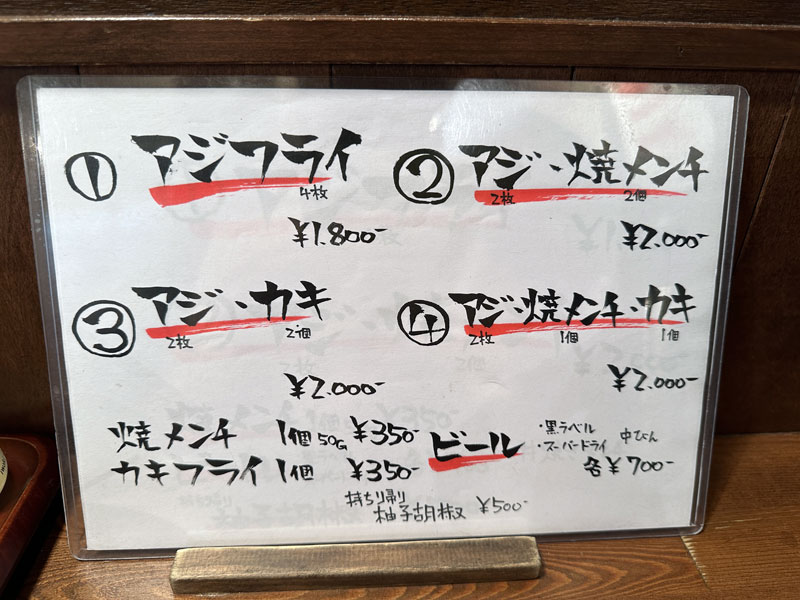 ① アジフライ
4枚
¥1.800-
② アジ・焼メンチ
2枚 2個
¥2.000-
③ アジ・カキ
2枚 2個
¥2.000-
④ アジ・焼メンチ・カキ
2枚 1個 1個
¥2.000-
焼メンチ 1個 50G ¥350-
カキフライ 1個 ¥350-
ビール
・黒ラベル
・スーパードライ
中びん
各¥700-
持ち帰り
柚子胡椒 ¥500-